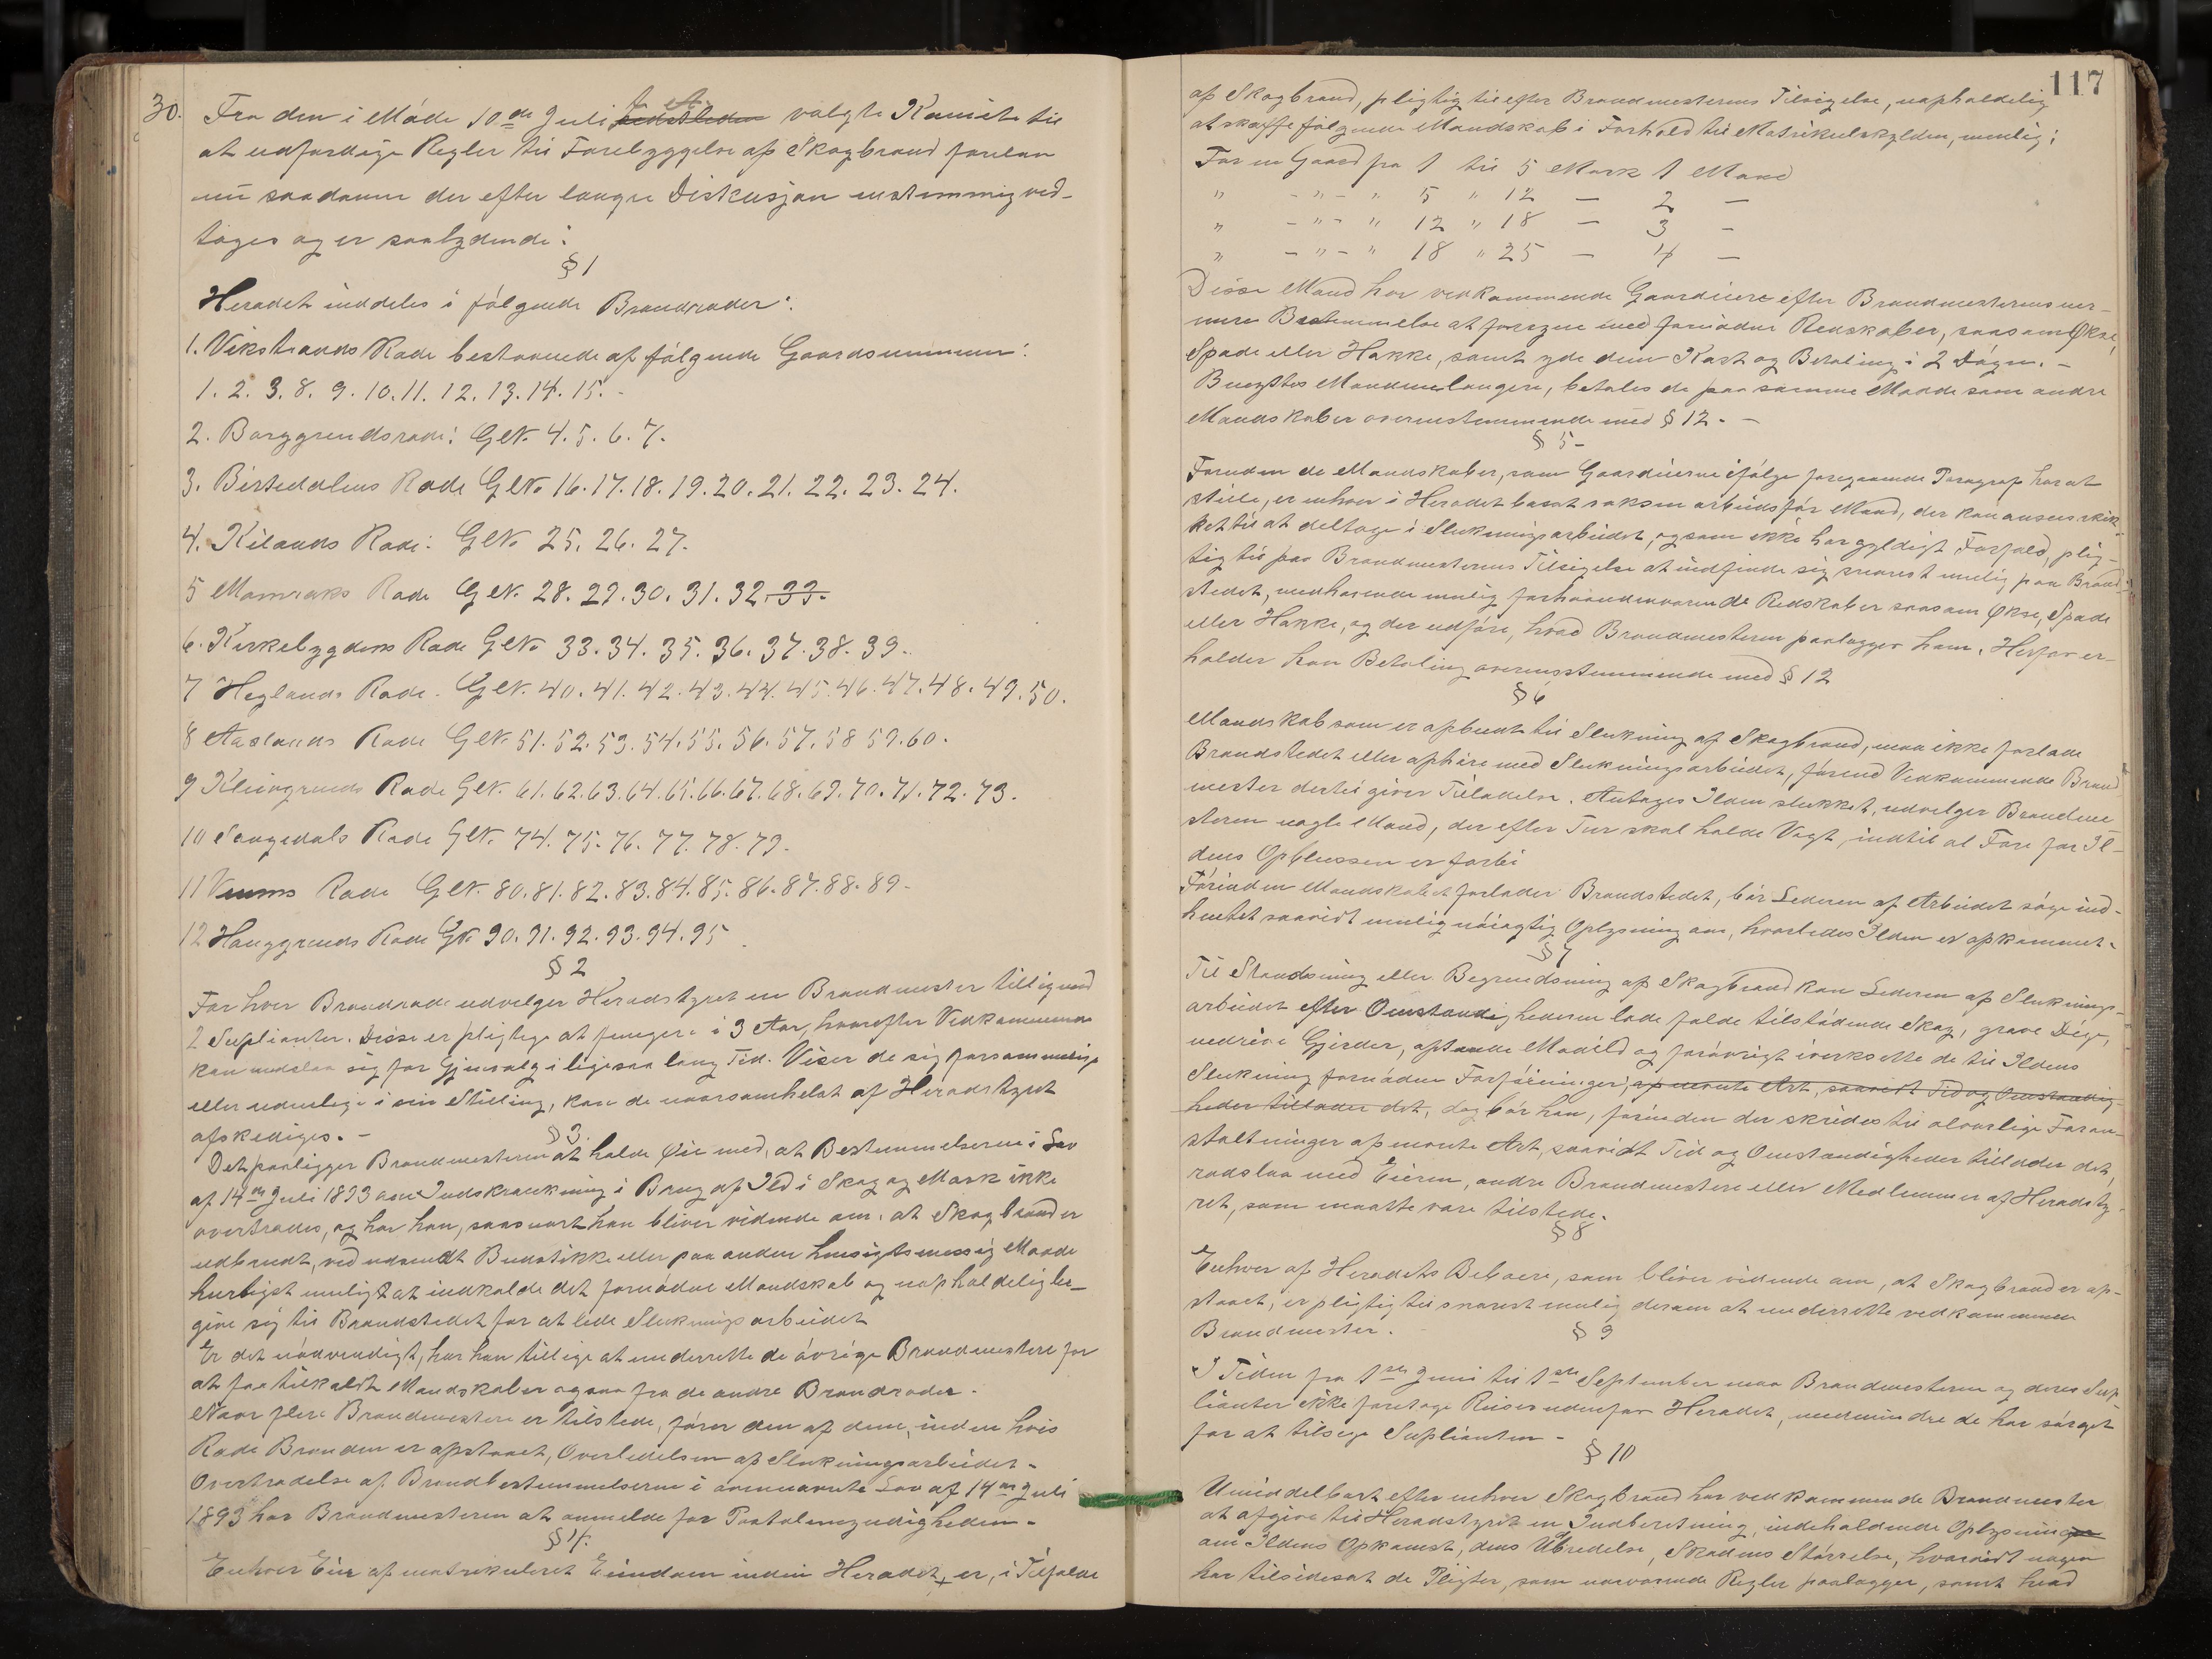 30.
Fra den i Møde 10de Juli f. A. ~~sidstleden~~ valgte Komite til
at udfærdige Regler til Forebyggelse af Skogbrand forelaa
nu saadanne der efter længre Diskusjon enstemmig ved-
toges og er saalydende:
§ 1
Heradet inddeles i følgende Brandroder:
1. Vikstrands Rode bestaaende af følgende Gaardsnummer:
1. 2. 3. 8. 9. 10. 11. 12. 13. 14. 15. -
2. Borggrendsrode: G.No. 4. 5. 6. 7.
3. Birtedalens Rode G.No. 16. 17. 18. 19. 20. 21. 22. 23. 24.
4. Kilands Rode: G.No. 25. 26. 27.
5 Momraks Rode G.No. 28. 29. 30. 31. 32. ~~33.~~
6. Kirkebygdens Rode G.No. 33. 34. 35. 36. 37. 38. 39.
7 Heglands Rode. G.No. 40. 41. 42. 43. 44. 45. 46. 47. 48. 49. 50.
8 Aaslands Rode G.No. 51. 52. 53. 54. 55. 56. 57. 58 59. 60.
9 Kleivgrends Rode G.No. 61. 62. 63. 64. 65. 66. 67. 68. 69. 70. 71. 72. 73.
10 Songedals Rode G.No. 74. 75. 76. 77. 78. 79.
11 Veums Rode G.No. 80. 81. 82. 83. 84. 85. 86. 87. 88. 89.
12 Hauggrends Rode G.No. 90. 91. 92. 93. 94. 95
§ 2
For hver Brandrode udvelger Heradstyret en Brandmester tilligemed
2 Suplianter. Disse er pligtige at fungere i 3 Aar, hvorefter Vedkommende
kan undslaa sig for Gjenvalg i ligesaa lang Tid. Viser de sig forsømmelige
eller udulige i sin Stilling, kan de naarsomhelst af Heradstyret
afskediges. -
§ 3.
Det paaligger Brandmesteren at holde Øie med, at Bestemmelserne i Lov
af 14de Juli 1893 om Indskrænkning i Brug af Ild i Skog og Mark ikke
overtrædes, og har han, saasnart han bliver vidende om, at Skogbrand er
udbrudt, ved udsendt Budstikke eller paa anden hensigtsmessig Maade
hurtigst muligt at indkalde det fornødne Mandskab og uopholdelig be-
give sig til Brandstedet for at lede Slukningsarbeidet
Er det nødvendigt, har han tillige at underrette de øvrige Brandmestere for
at faa tilkaldt Mandskaber ogsaa fra de andre Brandroder.
Naar flere Brandmestere er tilstede, fører den af dem, inden hvis
Rode Branden er opstaaet, Overledelsen af Slukningsarbeidet.
Overtrædelse af Brandbestemmelserne i ovennævnte Lov af 14de Juli
1893 har Brandmesteren at anmelde for Paatalemyndigheden.
§ 4.
Enhver Eier af matrikuleret Eiendom inden Heradet, er, i Tilfælde
117
af Skogbrand, pligtig til efter Brandmesterens Tilsigelse, uopholdelig
at skaffe følgende Mandskab i Forhold til Matrikulskylden, nemlig:
For en Gaard fra 1 til 5 Mark 1 Mand
" - " - " 5 " 12 - 2 -
" - " - " 12 " 18 - 3 -
" - " - " 18 " 25 - 4 -
Disse Mænd har vedkommende Gaardeiere efter Brandmesterens ner-
mere Bestemmelse at forsyne med fornødne Redskaber, saasom Økse,
Spade eller Hakke, samt yde dem Kost og Betaling i 2 Døgn. -
Benyttes Mændene længere, betales de paa samme Maade som andre
Mandskaber overenstemmende med § 12. -
§ 5 -
Foruden de Mandskaber, som Gaardeierne ifølge foregaaende Paragraf har at
stille, er enhver i Heradet bosat voksen arbeidsfør Mand, der kan ansees skik-
ket til at deltage i Slukningsarbeidet, og som ikke har gyldigt Forfald, plig-
tig til paa Brandmesterens Tilsigelse at indfinde sig snarest mulig paa Brand-
stedet, medhavende mulig forhaandenværende Redskaber saasom Økse, Spade
eller Hakke, og der udføre, hvad Brandmesteren paalægger ham. Herfor er-
holder han Betaling overensstemmende med § 12
§ 6
Mandskab som er opbudt til Slukning af Skogbrand, maa ikke forlade
Brandstedet eller ophøre med Slukningsarbeidet, førend Vedkommende Brand-
mester dertil giver Tilladelse. Antages Ilden slukket, udvelger Brandme-
steren nogle Mænd, der efter Tur skal holde Vagt, indtil al Fare for Il-
dens Opblussen er forbi
Førinden Mandskabet forlader Brandstedet, bør Lederen af Arbeidet søge ind-
hentet saavidt mulig nøiagtig Oplysning om, hvorledes Ilden er opkommet.
§ 7
Til Standsning eller Begrændsning af Skogbrand kan Lederen af Sluknings-
arbeidet efter Omstændighederne lade fælde tilstødende Skog, grave Diger,
nedrive Gjerder, optænde Modild og forøvrigt iverksette de til Ildens
Slukning fornødne Forføininger, ~~af nevnte Art, saavidt Tid og Omstændig-~~
~~heder tillader det,~~ dog bør han, førinden der skrides til alvorlige Foran-
staltninger af nevnte Art, saavidt Tid og Omstændigheder tillader det,
raadslaa med Eieren, andre Brandmestere eller Medlemmer af Heradsty-
ret, som maatte være tilstede.
§ 8
Enhver af Heradets Beboere, som bliver vidende om, at Skogbrand er op-
staaet, er pligtig til snarest mulig derom at underrette vedkommende
Brandmester.
§ 9
I Tiden fra 1ste Juni til 1ste September maa Brandmesteren og deres Sup-
lianter ikke foretage Reiser udenfor Heradet, medmindre de har sørget
for at tilsige Suplianten -
§ 10
Umiddelbart efter enhver Skogbrand har vedkommende Brandmester
at afgive til Heradstyret en Indberetning, indeholdende Oplysning
om Ildens Opkomst, dens Udbredelse, Skadens Størrelse, hvorvidt nogen
har tilsidesat de Pligter, som nærværende Regler paalægger, samt hvad